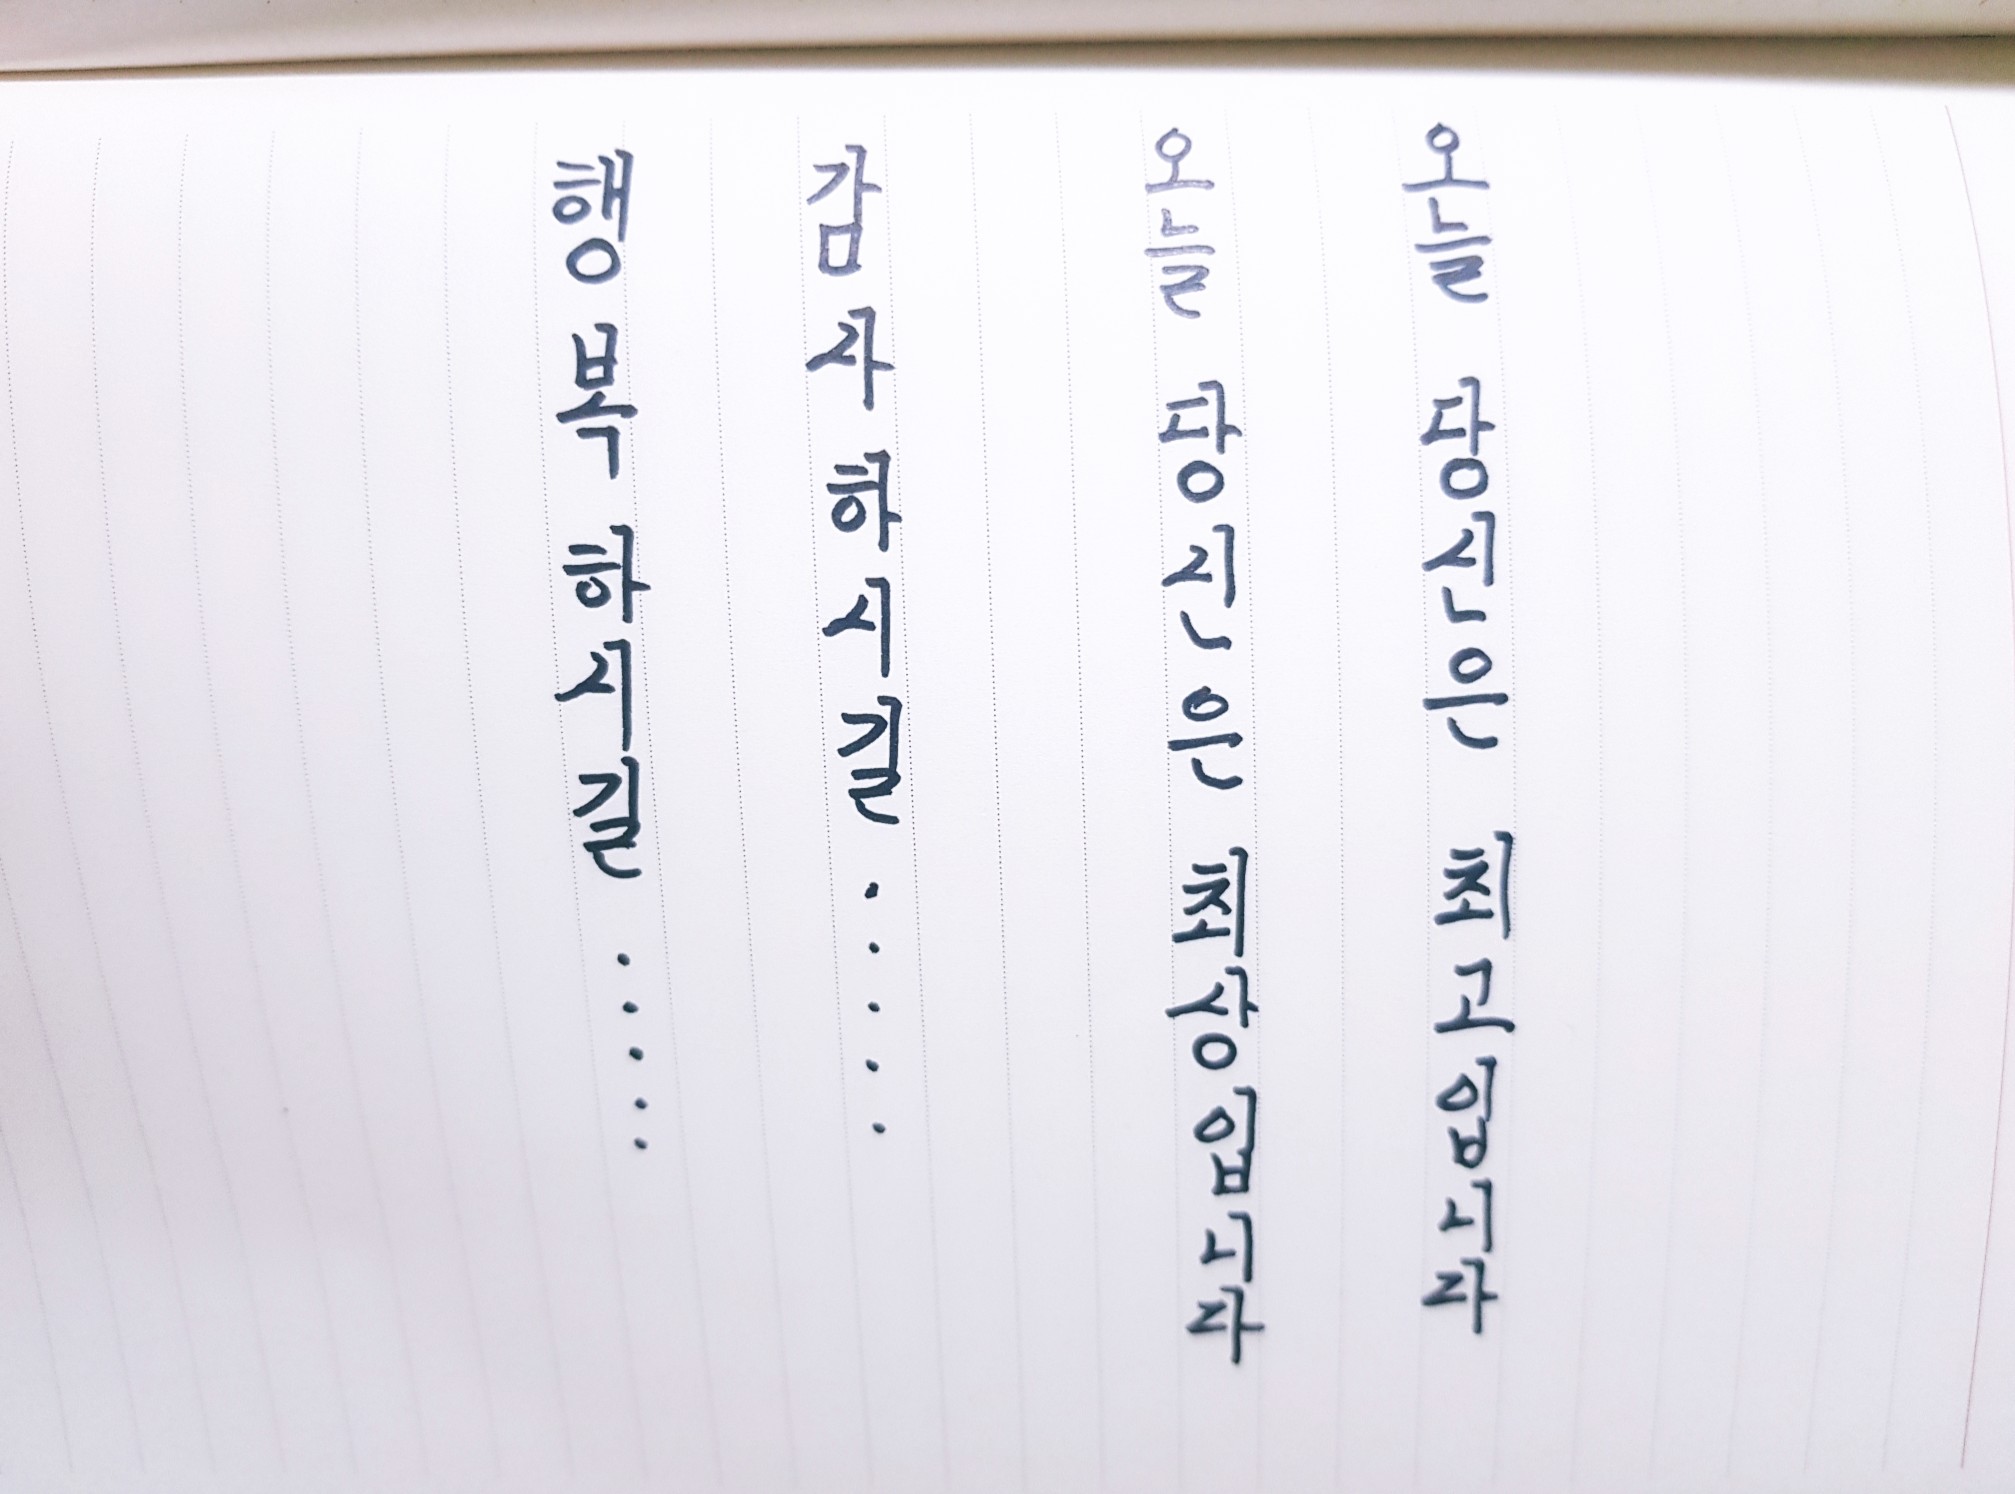 오늘 당신은 최고입니다
오늘 당신은 최상입니다
감사하시길 . . . . .
행복하시길 . . . . .